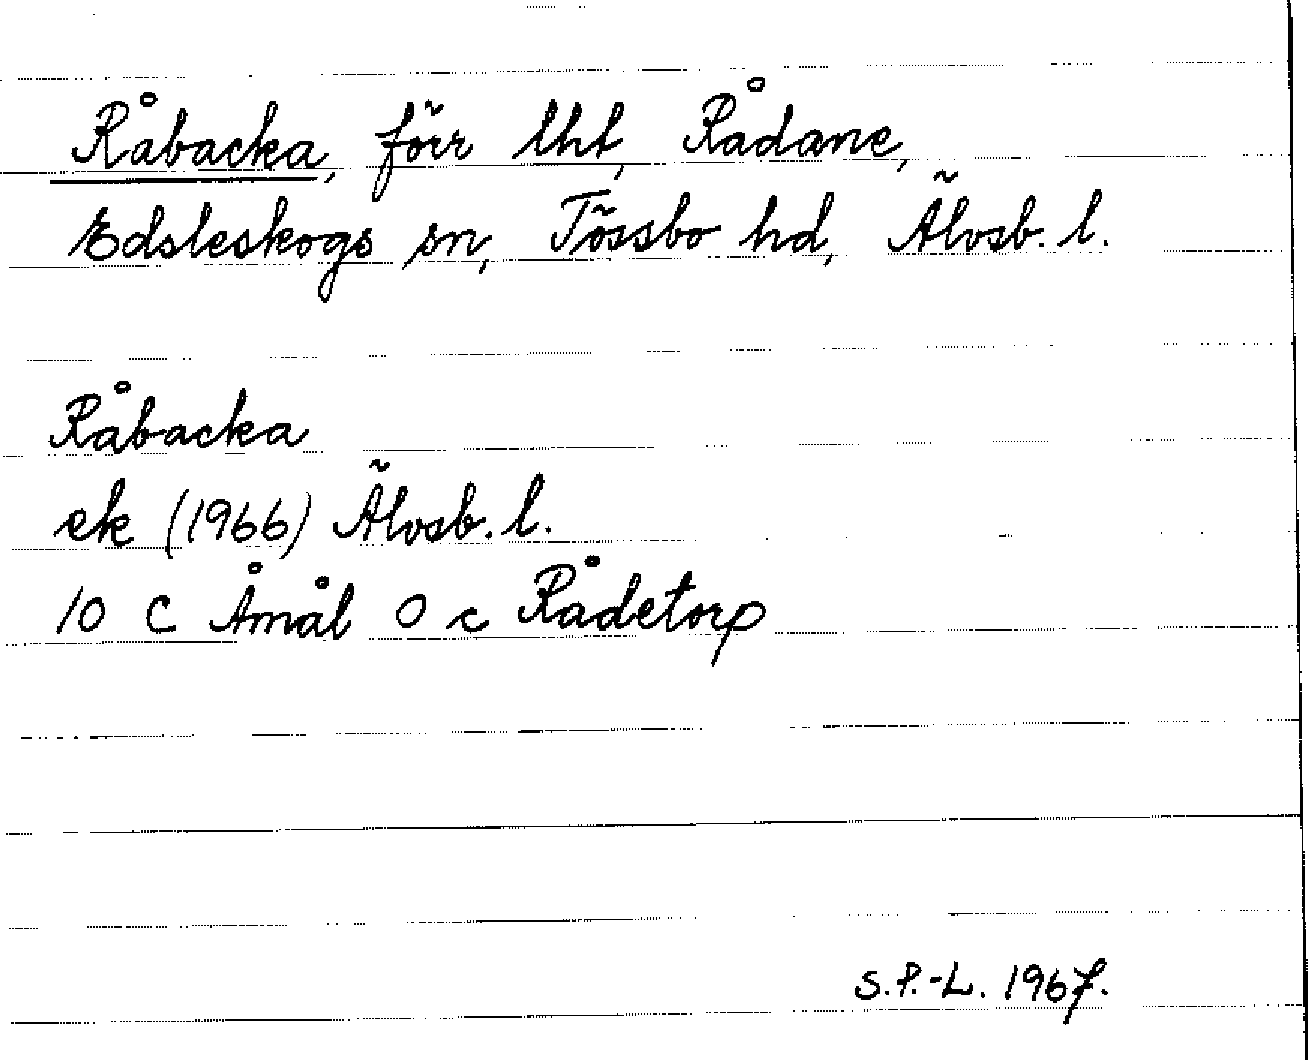 Råbacka, förr lht, Rådane,
Edsleskogs sn, Tössbo hd, Älvsb. l.
Råbacka
ek (1966) Älvsb. l.
10 C Åmål 0 c Rådetorp
S.P.-L. 1967.